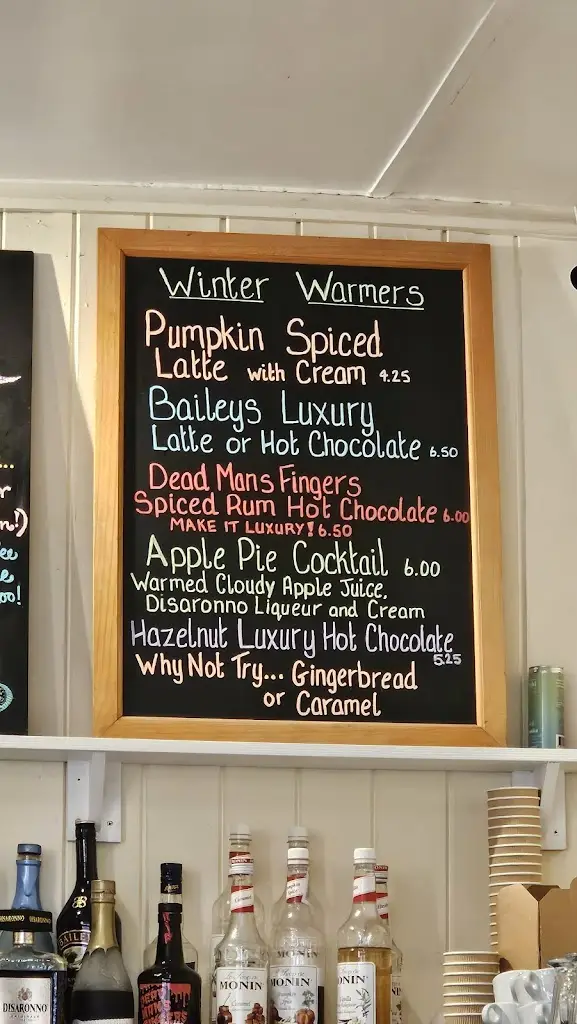 Winter Warmers
Pumpkin Spiced
Latte with Cream 4.25
Baileys Luxury
Latte or Hot Chocolate 6.50
Dead Mans Fingers
Spiced Rum Hot Chocolate 6.00
MAKE IT LUXURY! 6.50
Apple Pie Cocktail 6.00
Warmed Cloudy Apple Juice,
Disaronno Liqueur and Cream
Hazelnut Luxury Hot Chocolate
5.25
Why Not Try... Gingerbread
or Caramel
DISARONNO
DISARONNO
MONIN
Caramel
MONIN
MONIN